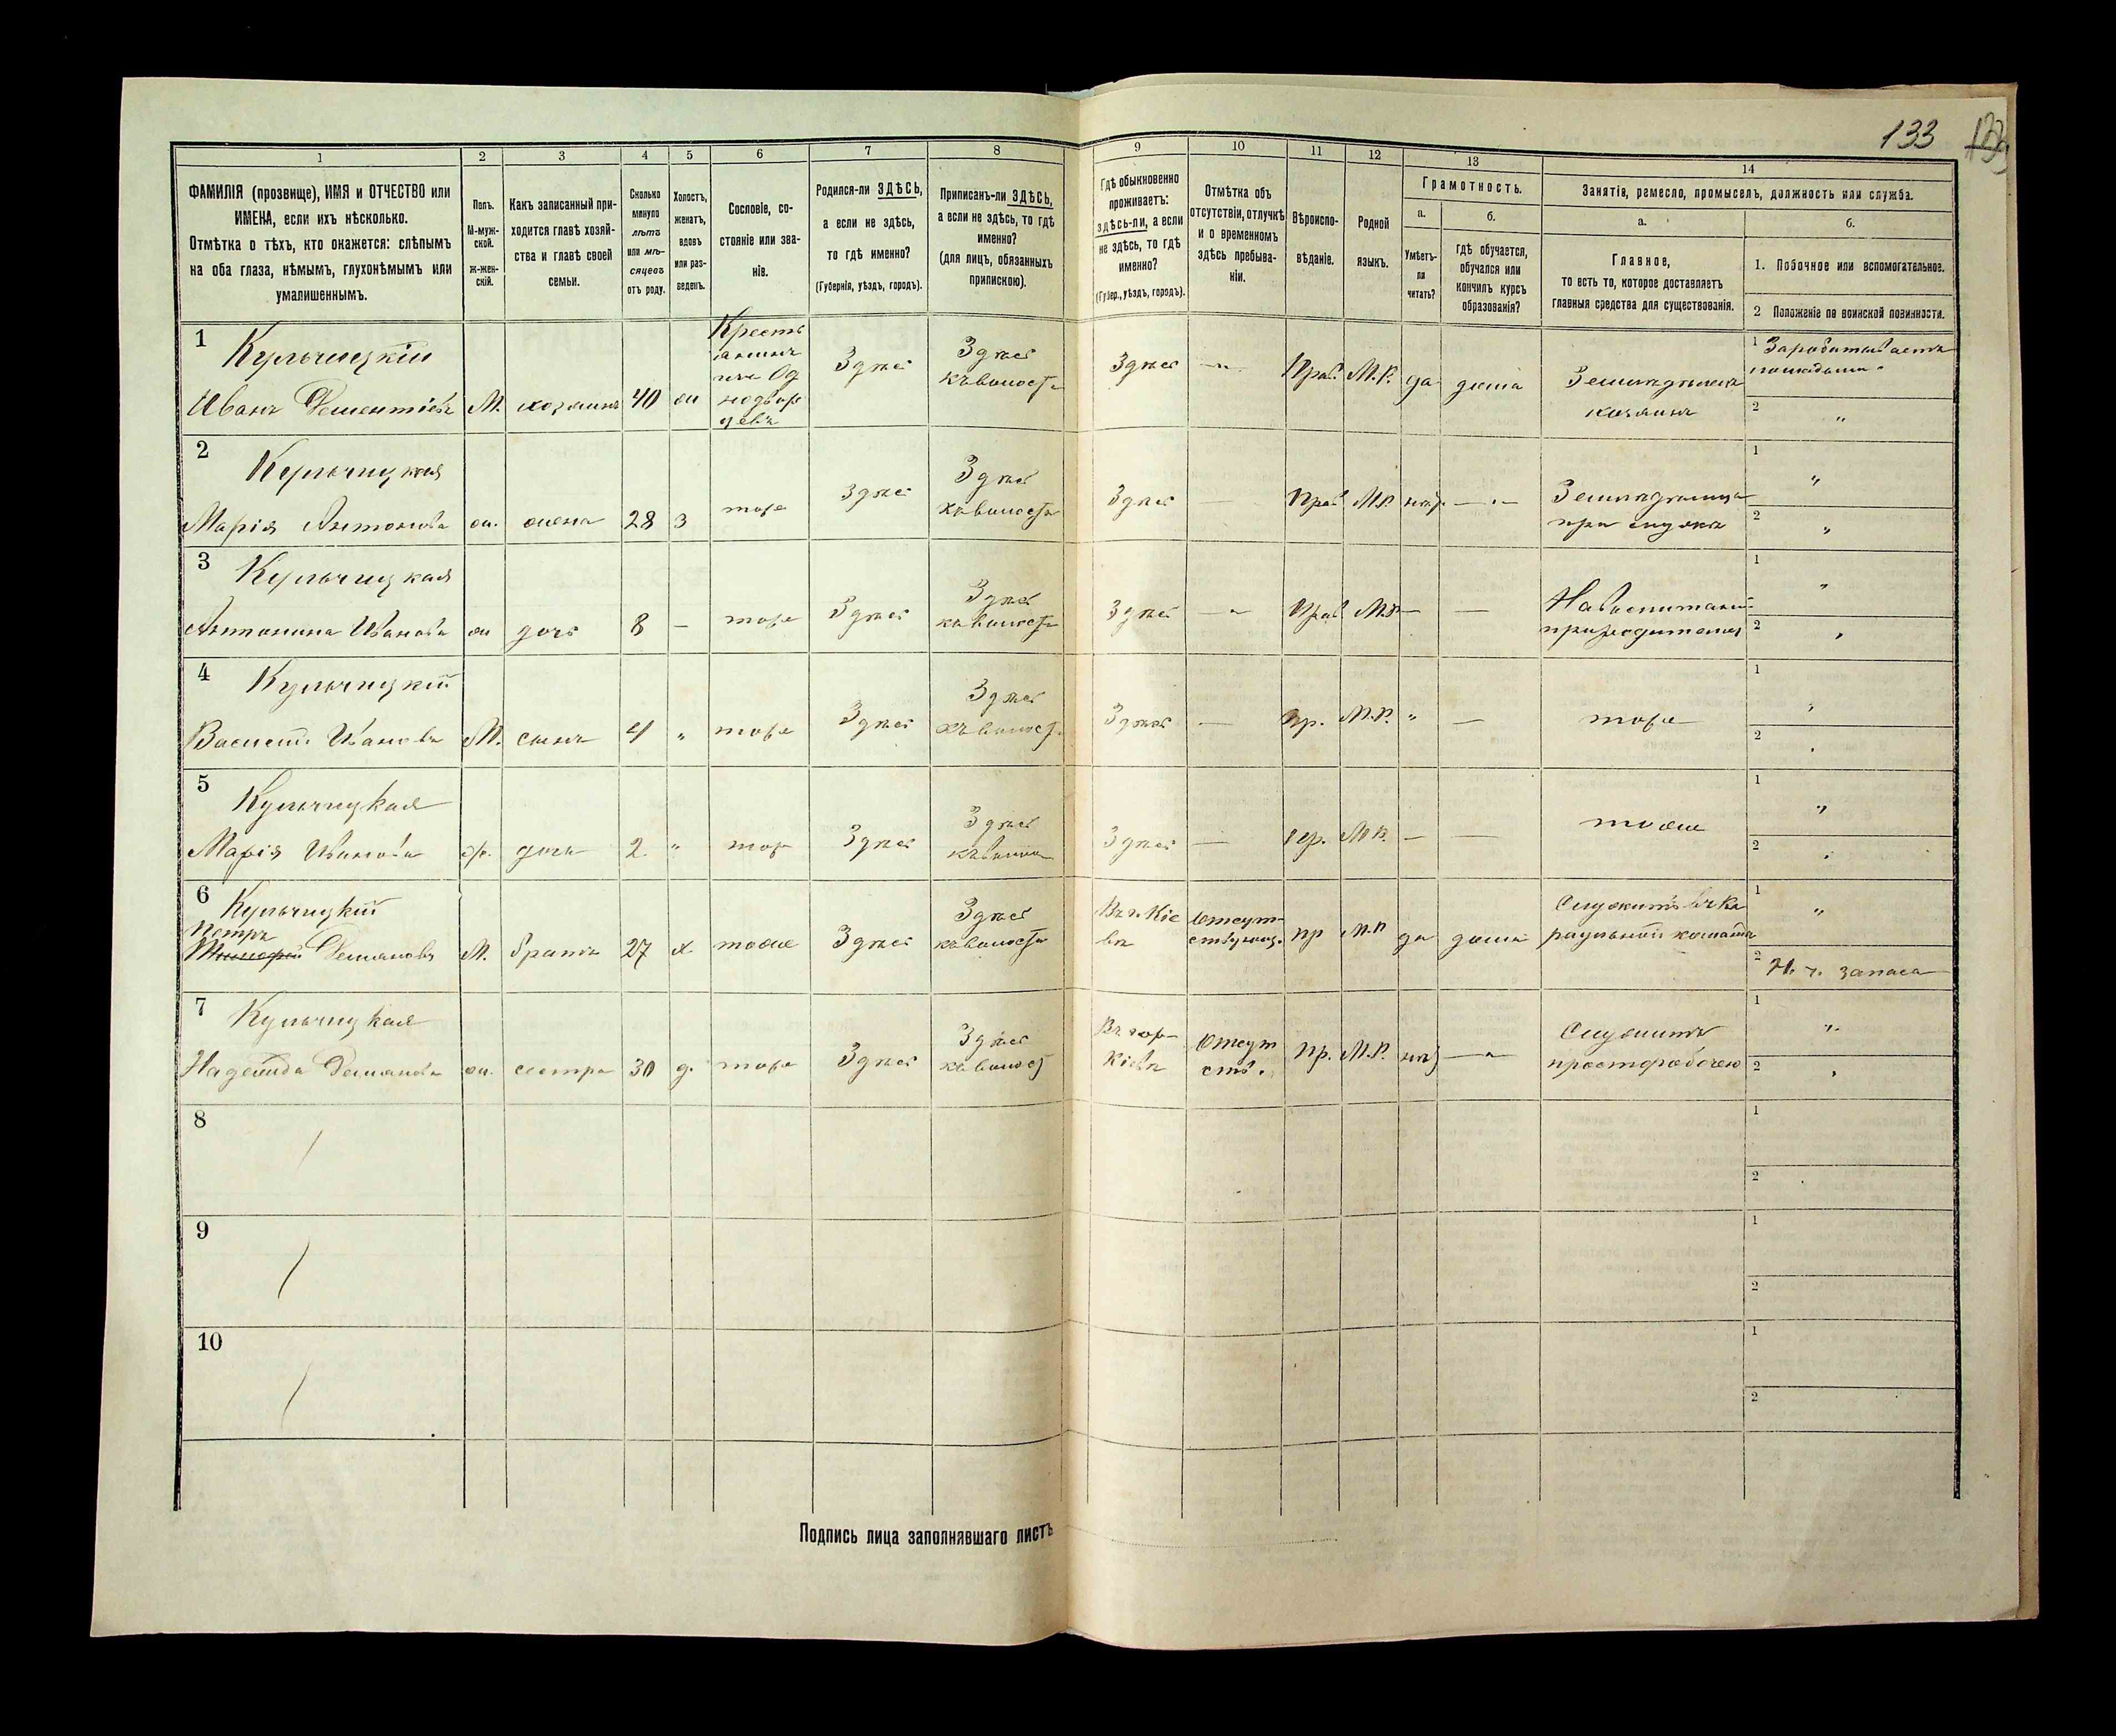 133
1 2 3 4 5 6 7 8 9 10 11 12 13 14
ФАМИЛІЯ (прозвище), ИМЯ и ОТЧЕСТВО или
ИМЕНА, если ихъ нѣсколько.
Отмѣтка о тѣхъ, кто окажется: слѣпымъ
на оба глаза, нѣмымъ, глухонѣмымъ или
умалишеннымъ.
Полъ.
М-муж-
ской.
ж-жен-
скій.
Какъ записанный при-
ходится главѣ хозяй-
ства и главѣ своей
семьи.
Сколько
минуло
лѣтъ
или мѣ-
сяцевъ
отъ роду.
Холостъ,
женатъ,
вдовъ
или раз-
веденъ.
Сословіе, со-
стояніе или зва-
ніе.
Родился-ли ЗДѢСЬ,
а если не здѣсь,
то гдѣ именно?
(Губернія, уѣздъ, городъ).
Приписанъ-ли ЗДѢСЬ,
а если не здѣсь, то гдѣ
именно?
(для лицъ, обязанныхъ
припискою).
Гдѣ обыкновенно
проживаетъ:
здѣсь-ли, а если
не здѣсь, то гдѣ
именно?
(Губер., уѣздъ, городъ).
Отмѣтка объ
отсутствіи, отлучкѣ
и о временномъ
здѣсь пребыва-
ніи.
Вѣроиспо-
вѣданіе.
Родной
языкъ.
Грамотность.
а.
Умѣетъ-
ли
читать?
б.
Гдѣ обучается,
обучался или
кончилъ курсъ
образованія?
Занятія, ремесло, промыселъ, должность или служба.
а.
Главное,
то есть то, которое доставляетъ
главныя средства для существованія.
б.
1. Побочное или вспомогательное.
2 Положеніе по воинской повинности.
1 Кульчицкій
Иванъ Дементіевъ М. хозяинъ 40 ж
Крестьянинъ
изъ Од
нодвор
цевъ
Здѣсь
Здѣсь
къ волости
Здѣсь — Прав. М.Р. да дома
Земледѣлецъ
хозяинъ
1 Зарабатываетъ
2 "
2 Кульчицкая
Марія Антонова ж. жена 28 з тоже Здѣсь
Здѣсь
къ волости
Здѣсь — Прав М.Р. нѣт —
Земледѣлица
при мужѣ
1 "
2 "
3 Кульчицкая
Антонина Иванова ж дочь 8 — тоже Здѣсь
Здѣсь
къ волости
Здѣсь — Прав М.Р — —
На воспитаніи
при родителяхъ
1 "
2 "
4 Кульчицкій
Василій Ивановъ М. сынъ 4 " тоже Здѣсь
Здѣсь
къ волост.
Здѣсь — Пр. М.Р. " — тоже
1 "
2 "
5 Кульчицкая
Марія Иванова ж. дочь 2. " тоже Здѣсь
Здѣсь
къ волос
Здѣсь — пр. М Р. — — тоже
1 "
2 "
6 Кульчицкій
Петръ
Демяновъ М. братъ 27 х. тоже Здѣсь
Здѣсь
къ волости
Въ г. Кіе
вѣ
Отсут-
ствующ.
пр М.Р да дома
Служитъ въ Ка
1 "
2 Н. ч. запаса
7 Кульчицкая
Надежда Демянова ж. сестра 30 д. тоже Здѣсь
Здѣсь
къ волост
Въ гор-
Кіевѣ
Отсут
ств.
пр. М.Р. нѣт —
Служитъ
1 "
2 "
8
1
2
9
1
2
10
1
2
Подпись лица заполнявшаго листъ